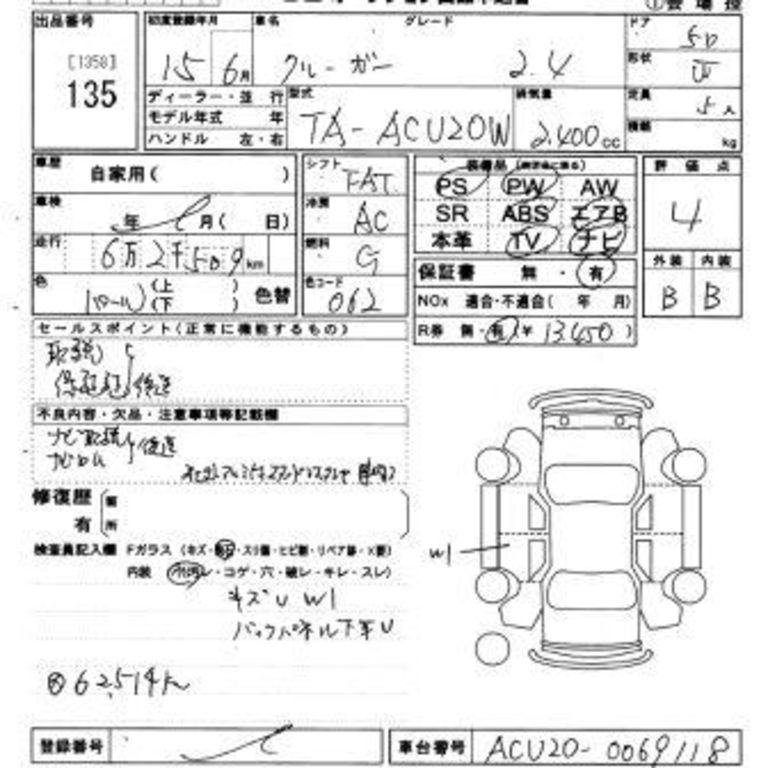 出品番号
[1358]
135
初度登録年月
15 6月
車名
クルーガー
グレード
2.4
ドア
5D
形状
定員
5人
積載
kg
ディーラー・並 行
モデル年式 年
ハンドル 左・右
型式
TA-ACU20W
排気量
2,400cc
車歴
自家用( )
車検
年 月( 日)
走行
6万2千509km
色
パール (上 ) (下 ) 色替
シフト
FAT
冷房
AC
燃料
G
色コード
062
装備品
PS PW AW
SR ABS エアB
本革 TV ナビ
保証書 無・有
NOx 適合・不適合( 年 月)
R券 無・有 ¥ 13,450 )
評価点
4
外装 内装
B B
セールスポイント(正常に機能するもの)
取説
保証書 後送
不良内容・欠品・注意事項等記載欄
ナビ取説 後送
ナビロム
修復歴
有
箇
所
検査員記入欄 Fガラス (キズ・飛石・スリ傷・ヒビ割・リペア跡・X要)
内装 ・コゲ・穴・破レ・キレ・スレ)
キズU W1
バックパネル下部U
W1
62,514k
登録番号
車台番号 ACU20-0069118